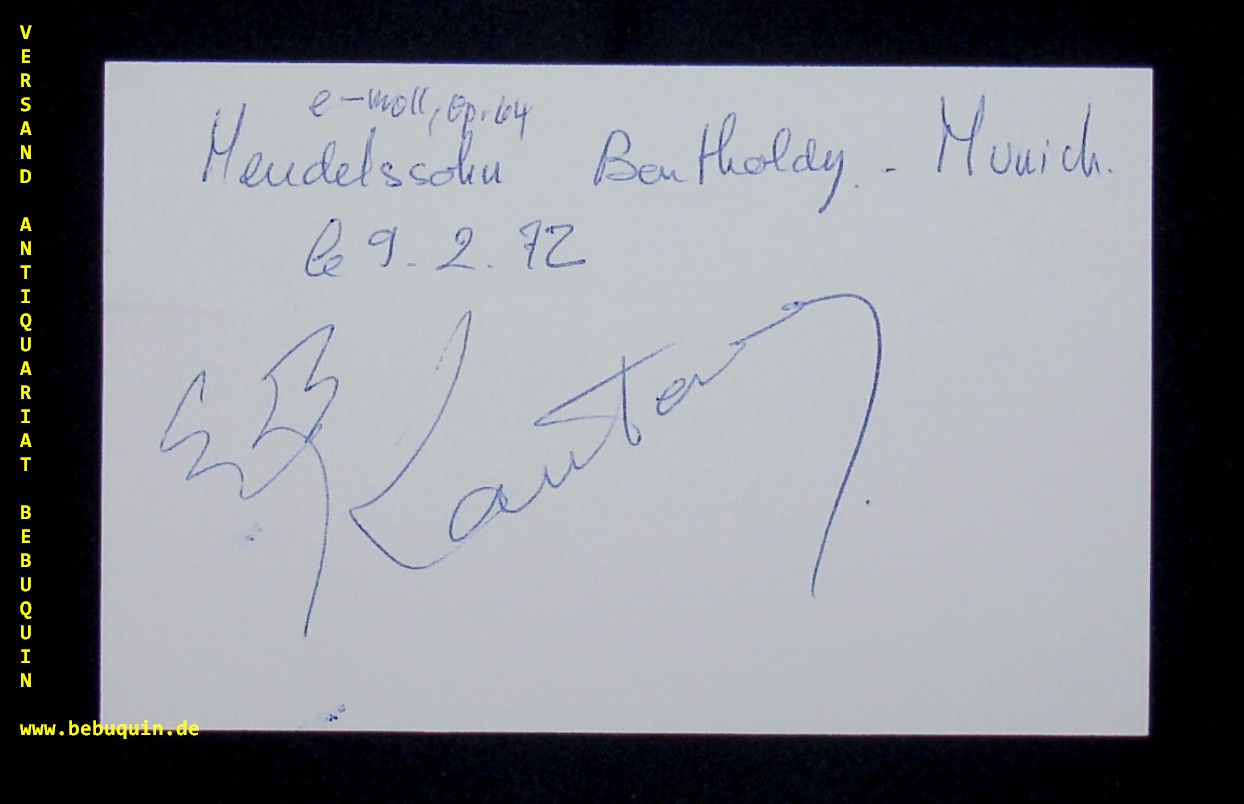 VERSAND ANTIQUARIAT BEBUQUIN
e-moll, Op. 64
Mendelssohn Bartholdy. - Munich.
le 9. 2. 72
www.bebuquin.de